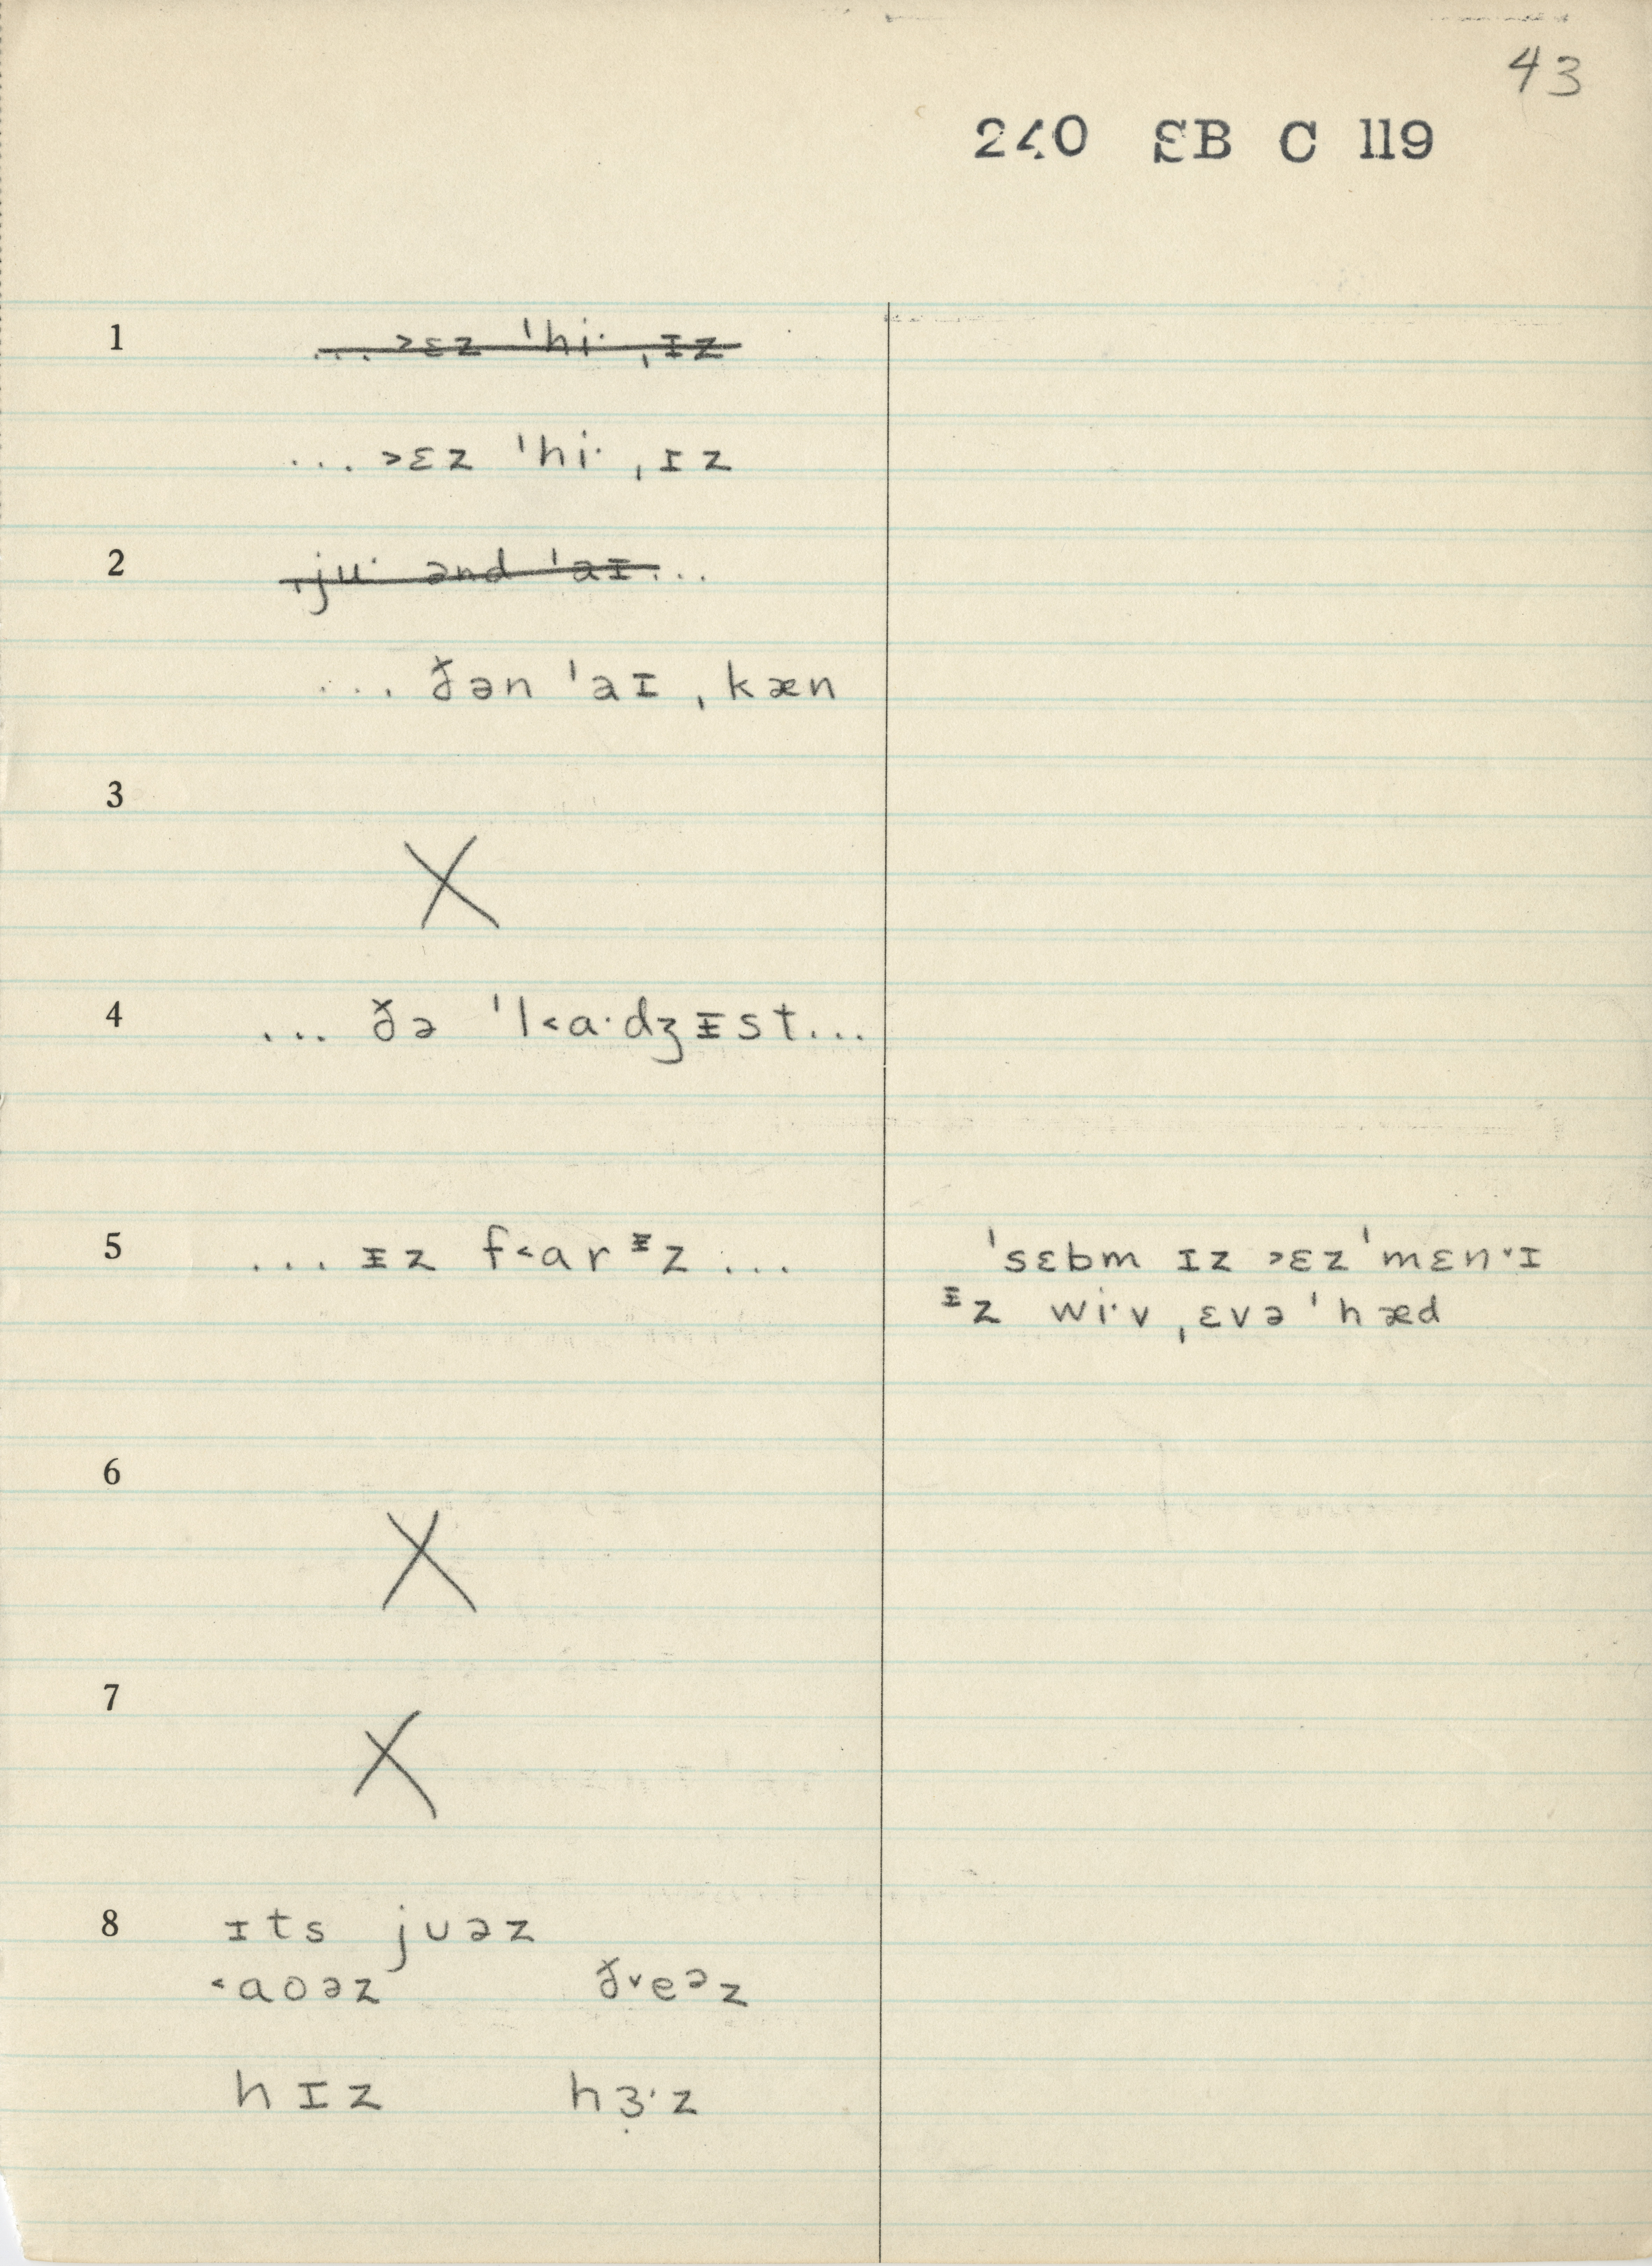 43
240 SB C 119
1 ... ˃ɛz ˈhi· ˌɪz
... ˃ɛz ˈhi· ˌɪz
2 ˌju· ənd ˈaɪ...
... ðən ˈaɪ ˌkæn
3
X
4 ... ðə ˈl˂a·dʒᵻst...
5 ... ᵻz f˂arᵻz ... ˈsɛbm ɪz ˃ɛz ˈmɛn˅ɪ
ᵻz wi·v ˌɛvə ˈhæd
6
X
7
X
8 ɪts juəz
˂aoəz ð˅eᵊz
hɪz hɜ̣·z